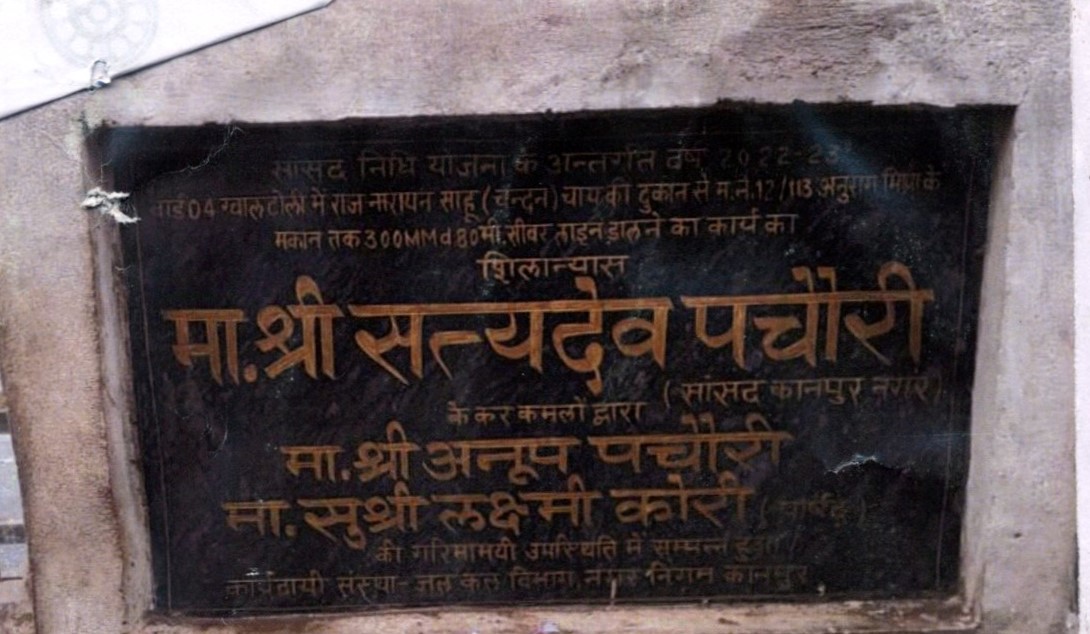 सांसद निधि योजना के अन्तर्गत वर्ष 2022-23
वार्ड 04 ग्वालटोली में राज नारायन साहू (चन्दन) चाय की दुकान से म.नं.12/113 अनुराग मिश्रा के
मकान तक 300MM व 80मी. सीवर लाइन डालने का कार्य का
शिलान्यास
मा.श्री सत्यदेव पचौरी
(सांसद कानपुर नगर)
के कर कमलों द्वारा
मा.श्री अनूप पचौरी
मा.सुश्री लक्ष्मी कोरी (पार्षद)
की गरिमामयी उपस्थिति में सम्पन्न हुआ
कार्यदायी संस्था- जल कल विभाग, नगर निगम कानपुर